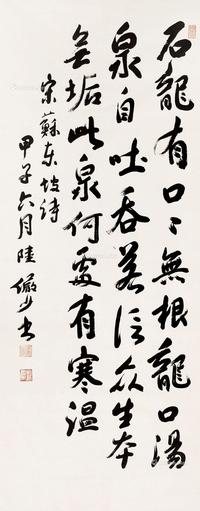 石龍有口〻無根龍口湯
泉自吐吞若信众生本
无垢此泉何處有寒温
宋蘇东坡诗
甲子六月陸儼少书